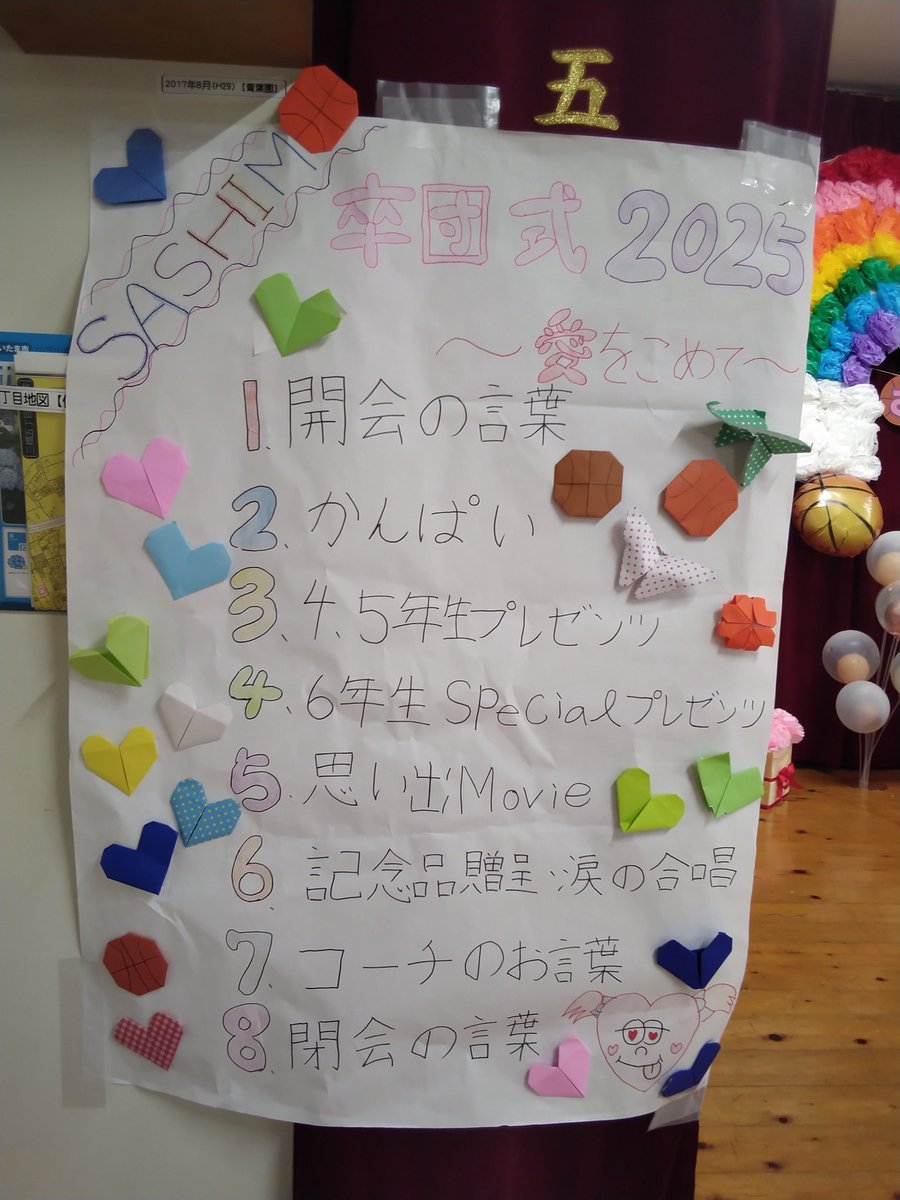 五
2017年8月(H29)【青葉園】
SASHIM
卒団式 2025
～愛をこめて～
1. 開会の言葉
2. かんぱい
3. 4、5年生プレゼンツ
4. 6年生 Specialプレゼンツ
5. 思い出Movie
6. 記念品贈呈・涙の合唱
7. コーチのお言葉
8. 閉会の言葉
いたま市
丁目地図【
さ